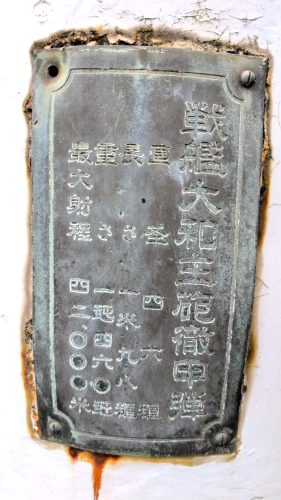 戦艦大和主砲徹甲弾
直径 四六糎
長さ 一米九八糎
重さ 一瓲四六〇瓩
最大射程 四二〇〇〇米